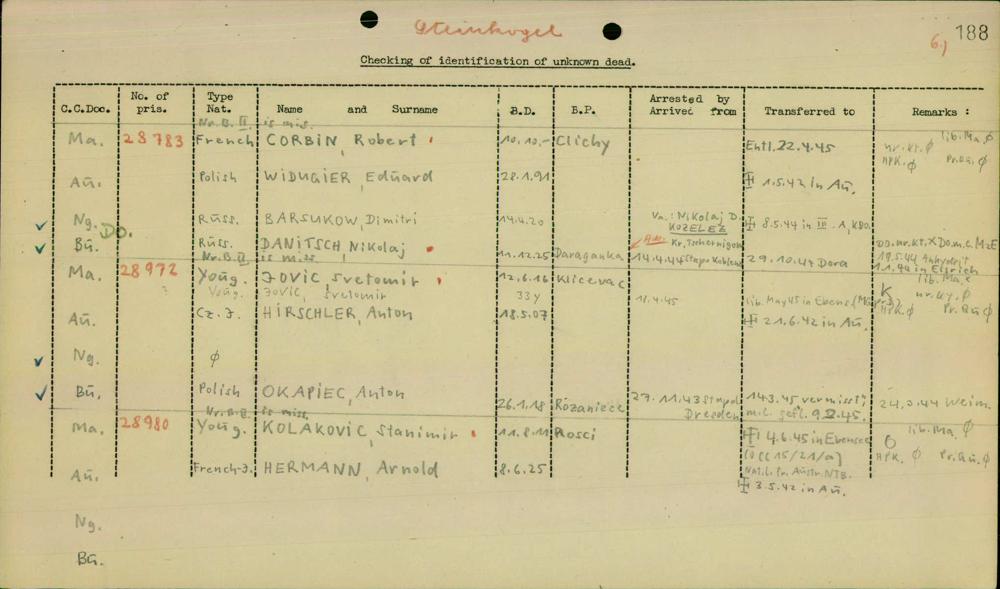 Steinkogel
6.) 188
Checking of identification of unknown dead.
C.C.Doc. No. of pris. Type Nat. Name and Surname B.D. B.P. Arrested by Arrived from Transferred to Remarks :
Nr.B.II is mis.
Ma. 28783 French CORBIN, Robert 10.10.- Clichy Entl.22.4.45 nr.kt.ϕ lib.Ma.ϕ
HPK.ϕ Pr.Bü.ϕ
Aü. Polish WIDUGIER, Edüard 28.1.91 1.5.42 in Aü.
Ng. Rüss. BARSUKOW, Dimitri 14.4.20 Va.: Nikolaj D. 8.5.44 in III. A, KDO.
Do. KOZELEZ
Bü. Rüss. DANITSCH, Nikolaj 11.12.25 Daraganka Kr.Tschernigow 14.4.44 Stapo Koblenz 29.10.44 Dora DO.nr.kt.X Do.m.c. M.z.E
19.5.44 Anhydrit
11.44 in Ellrich
Nr.B.II is miss.
Ma. 28972 Yoüg. JOVIC, Svetomir 12.6.16 Klicevac lib.Ma.
? Yoüg. JOVIC, Svetomir 33y 11.4.45 lib. May 45 in Ebens K nr.ky.ϕ
HPK.ϕ Pr.Bü ϕ
Aü. Cz.J. HIRSCHLER, Anton 18.5.07 21.6.42 in Aü.
Ng. ϕ
Bü. Polish OKAPIEC, Anton 26.1.18 Rozaniece 27.11.43 Stapol Dresden 143.45 vermisst; 24.3.44 Weim.
m.l. gefl. 9.2.45.
Nr.B.II is miss.
Ma. 28980 Yoüg. KOLAKOVIC, Stanimir 11.8.11 Rosci 4.6.45 in Ebensee O lib.Ma.ϕ
(OCC15/21/a) HPK.ϕ Pr.Bü.ϕ
Aü. French-J. HERMANN, Arnold 8.6.25 Nat.L. Fr. Aüstr. NTB.
3.5.42 in Aü.
Ng.
Bü.